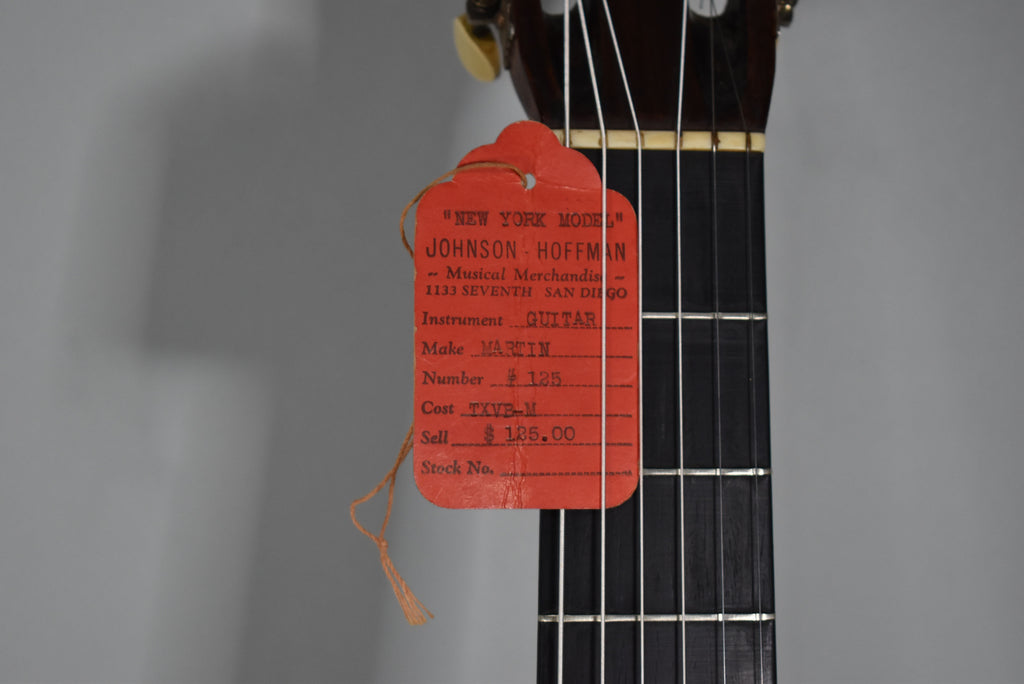 "NEW YORK MODEL"
JOHNSON - HOFFMAN
~ Musical Merchandise ~
1133 SEVENTH SAN DIEGO
Instrument GUITAR
Make MARTIN
Number # 125
Cost TXVB-M
Sell $ 125.00
Stock No.